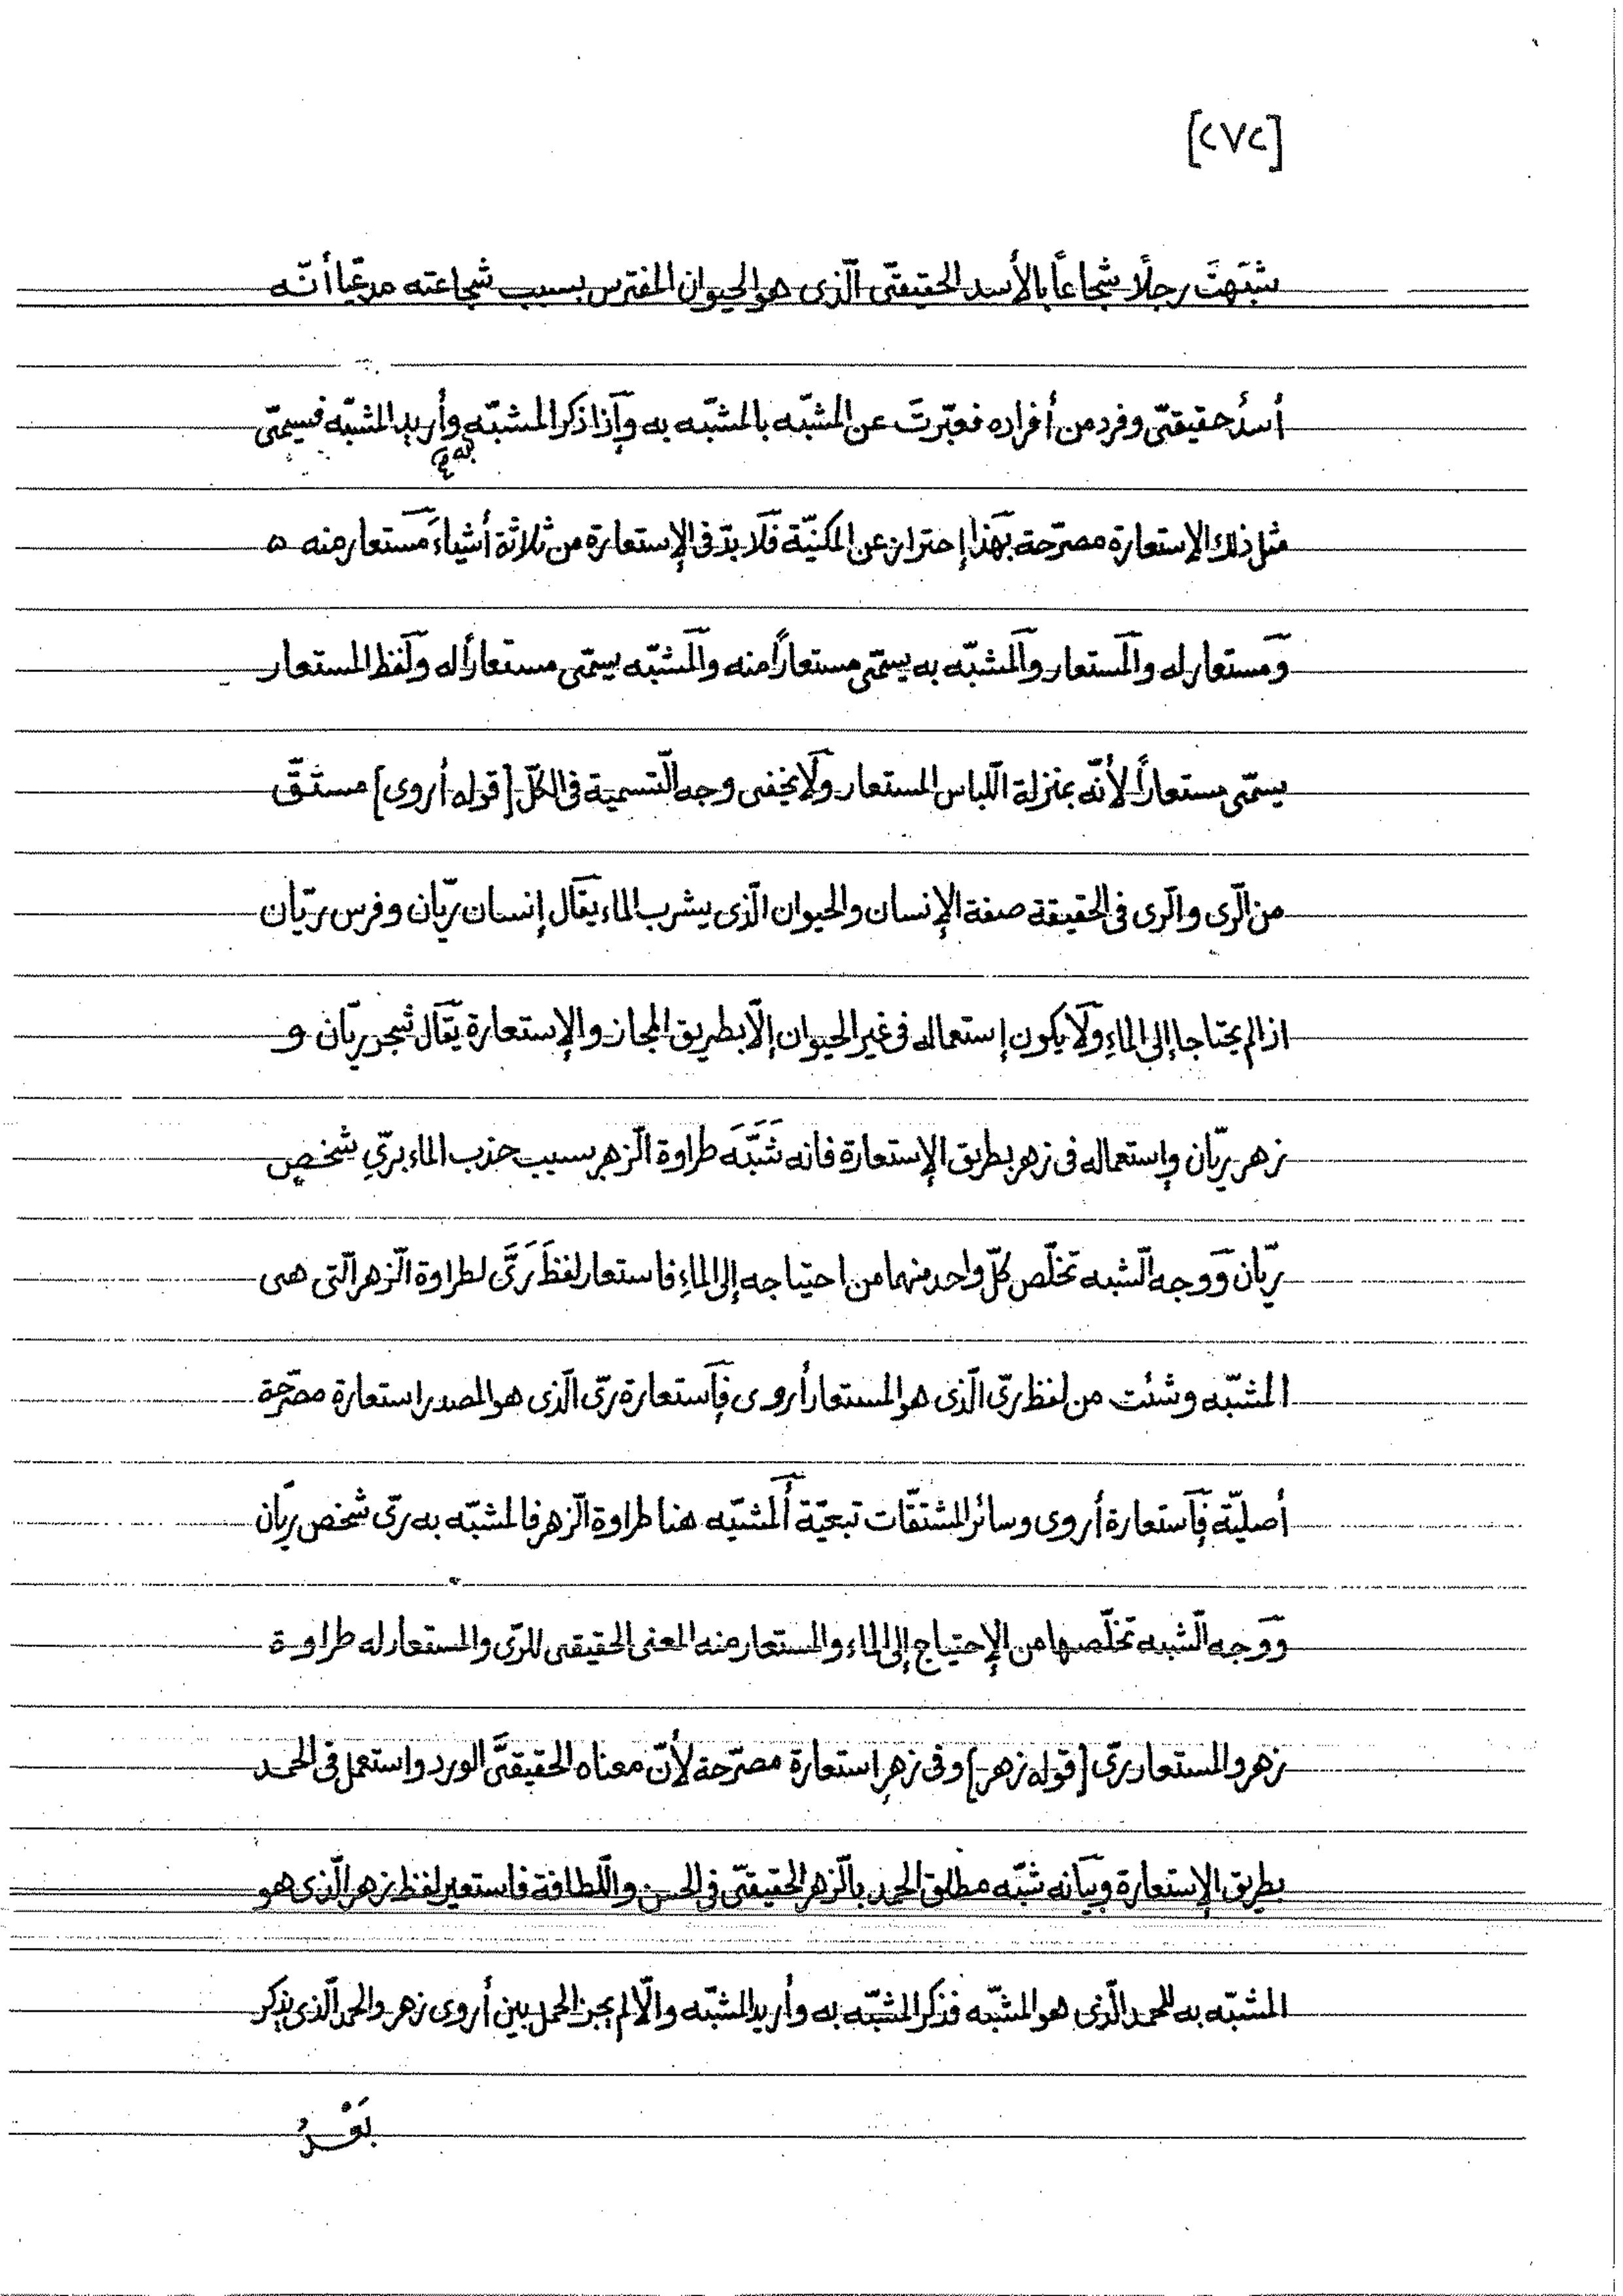 [٢٧٢]
شبّهتَ رجلًا شجاعًا بالأسد الحقيقىّ الّذى هو الحيوان المفترس بسبب شجاعته مدعّيا أنّه
أسدٌ حقيقىّ وفرد من أفراده فعبّرتَ عن المشبّه بالمشبّه به وإذا ذكر المشبّه وأريد المشبّه فيسمّى
به صح
مثل ذلك الإستعارة مصرّحة بهذا إحتراز عن المكنيّة فلا بدّ فى الإستعارة من ثلاثة أشياءَ مستعار منه ه
ومستعار له والمستعار والمشبّه به يسمّى مستعارًا منه والمشبّه يسمّى مستعارًا له ولفظ المستعار
يسمّى مستعارًا لأنّه بمنزلة اللّباس المستعار ولا يخفى وجه التّسمية فى الكلّ [قوله أروى] مستقّ
من الرّى والرّى فى الحقيقة صفة الإنسان والحيوان الّذى يشرب الماء يقال إنسان ريّان وفرس ريّان
اذا لم يحتاجا إلى الماءِ ولا يكون إستعماله فى غير الحيوان إلّا بطريق المجاز والإستعارة يقال شجر ريّان و
زهر ريّان وإستعماله فى زهر بطريق الإستعارة فانه شَبَّهَ طراوة الزّهر بسبب جذب الماء بريّ شخص
ريّان ووجه الشّبه تخلّص كلّ واحد منهما من احتياجه إلى الماءِ فاستعار لفظَ رَىَّ لطراوة الزّهر الّتى هى
المشبّه وشئت من لفظ ريّ الّذى هو المستعار أروى فإستعارة رىّ الّذى هو المصدر استعارة مصرّحة
أصليّة فإستعارة أروى وسائر المشتقّات تبعيّة ألمشبّه هنا طراوة الزّهر فالمشبّه به رىّ شخص ريّان
ووجه الشّبه تخلّصهما من الإحتياج إلى الماء والمستعار منه المعنى الحقيقى للرّى والمستعار له طراوة
زهر والمستعار رىّ [قوله زهر] وفى زهرِ إستعارة مصرّحة لأنّ معناه الحقيقىَّ الورد واستعمل فى الحمد
بطريق الإستعارة وبيانه شبّه مطلق الحمد بالزّهر الحقيقىّ فى الحسن واللّطافة فاستعير لفظ زهر الّذى هو
المشبّه به للحمد الّذى هو المشبّه فذكر المشبّه به وأريد المشبّه والّا لم يجز الحمل بين أروى زهر والحمد الّذى يذكر
بَعْدُ